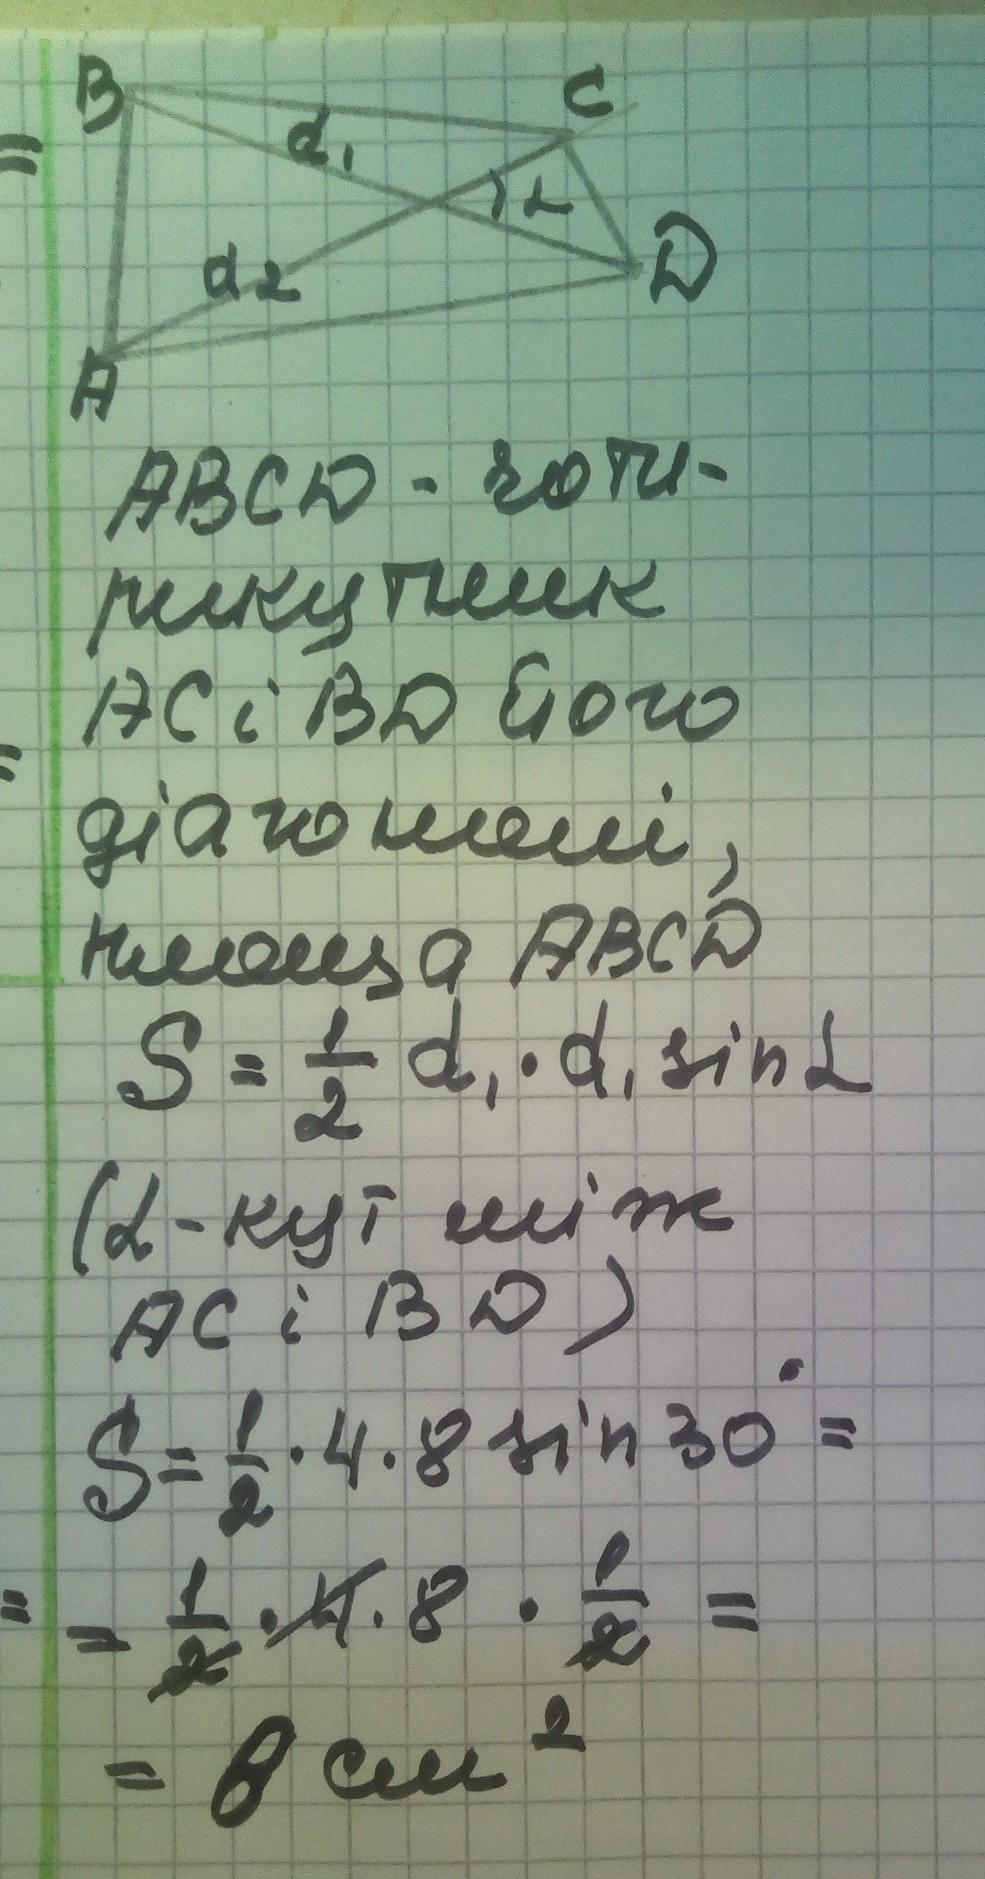 B C
d₁
α
d₂ D
A
ABCD - чоти-
рикутник
AC і BD його
діагоналі,
площа ABCD
S = 1/2 d₁ · d₁ sin α
(α - кут між
AC і BD)
S = 1/2 · 4 · 8 sin 30° =
= 1/2 · 4 · 8 · 1/2 =
= 8 см²